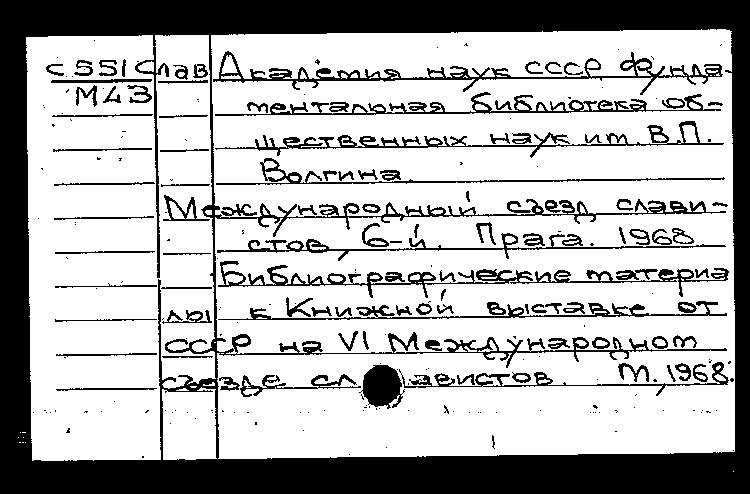 С551 Слав Академия наук СССР Фунда-
М43 ментальная библиотека об-
щественных наук им. В.П.
Волгина.
Международный съезд слави-
стов, 6-й. Прага. 1968.
Библиографические материа
лы к Книжной выставке от
СССР на VI Международном
съезде славистов. М., 1968.